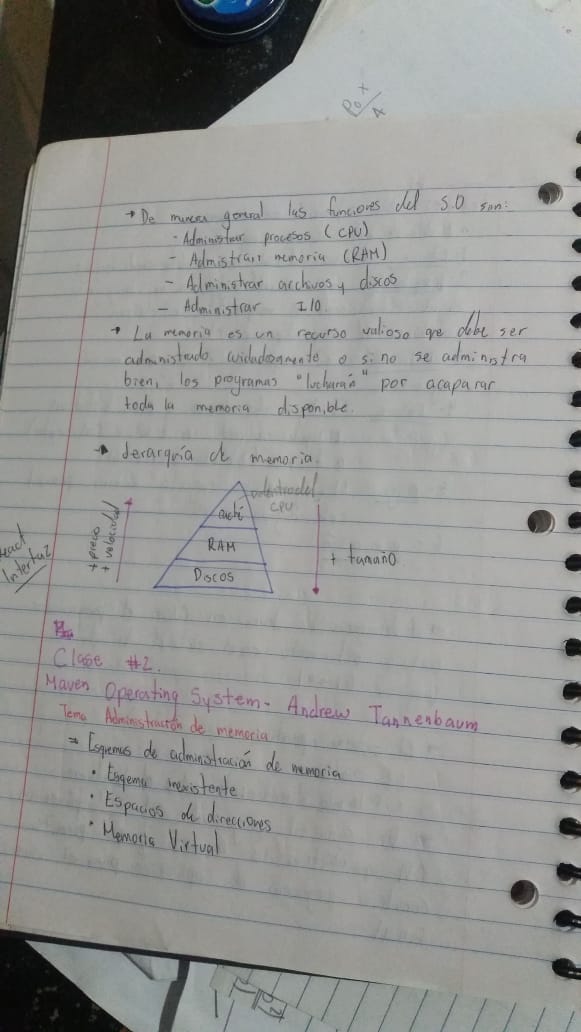 Po x
A
→ De manera general las funciones del S.O son:
- Administrar procesos (CPU)
- Admistrar memoria (RAM)
- Administrar archivos y discos
- Administrar I/O.
→ La memoria es un recurso valioso que debe ser
administrado cuidadosamente o si no se administra
bien, los programas "lucharán" por acaparar
toda la memoria disponible.
→ Jerarquía de memoria.
dentro del
CPU
caché
RAM
Discos
+ precio
+ velocidad
+ tamaño
Interfaz
Clase #2.
Maven Operating System - Andrew Tannenbaum
Tema Administración de memoria
⇒ Esqemas de administración de memoria
• Esqema inexistente
• Espacios de direcciones
• Memoria Virtual